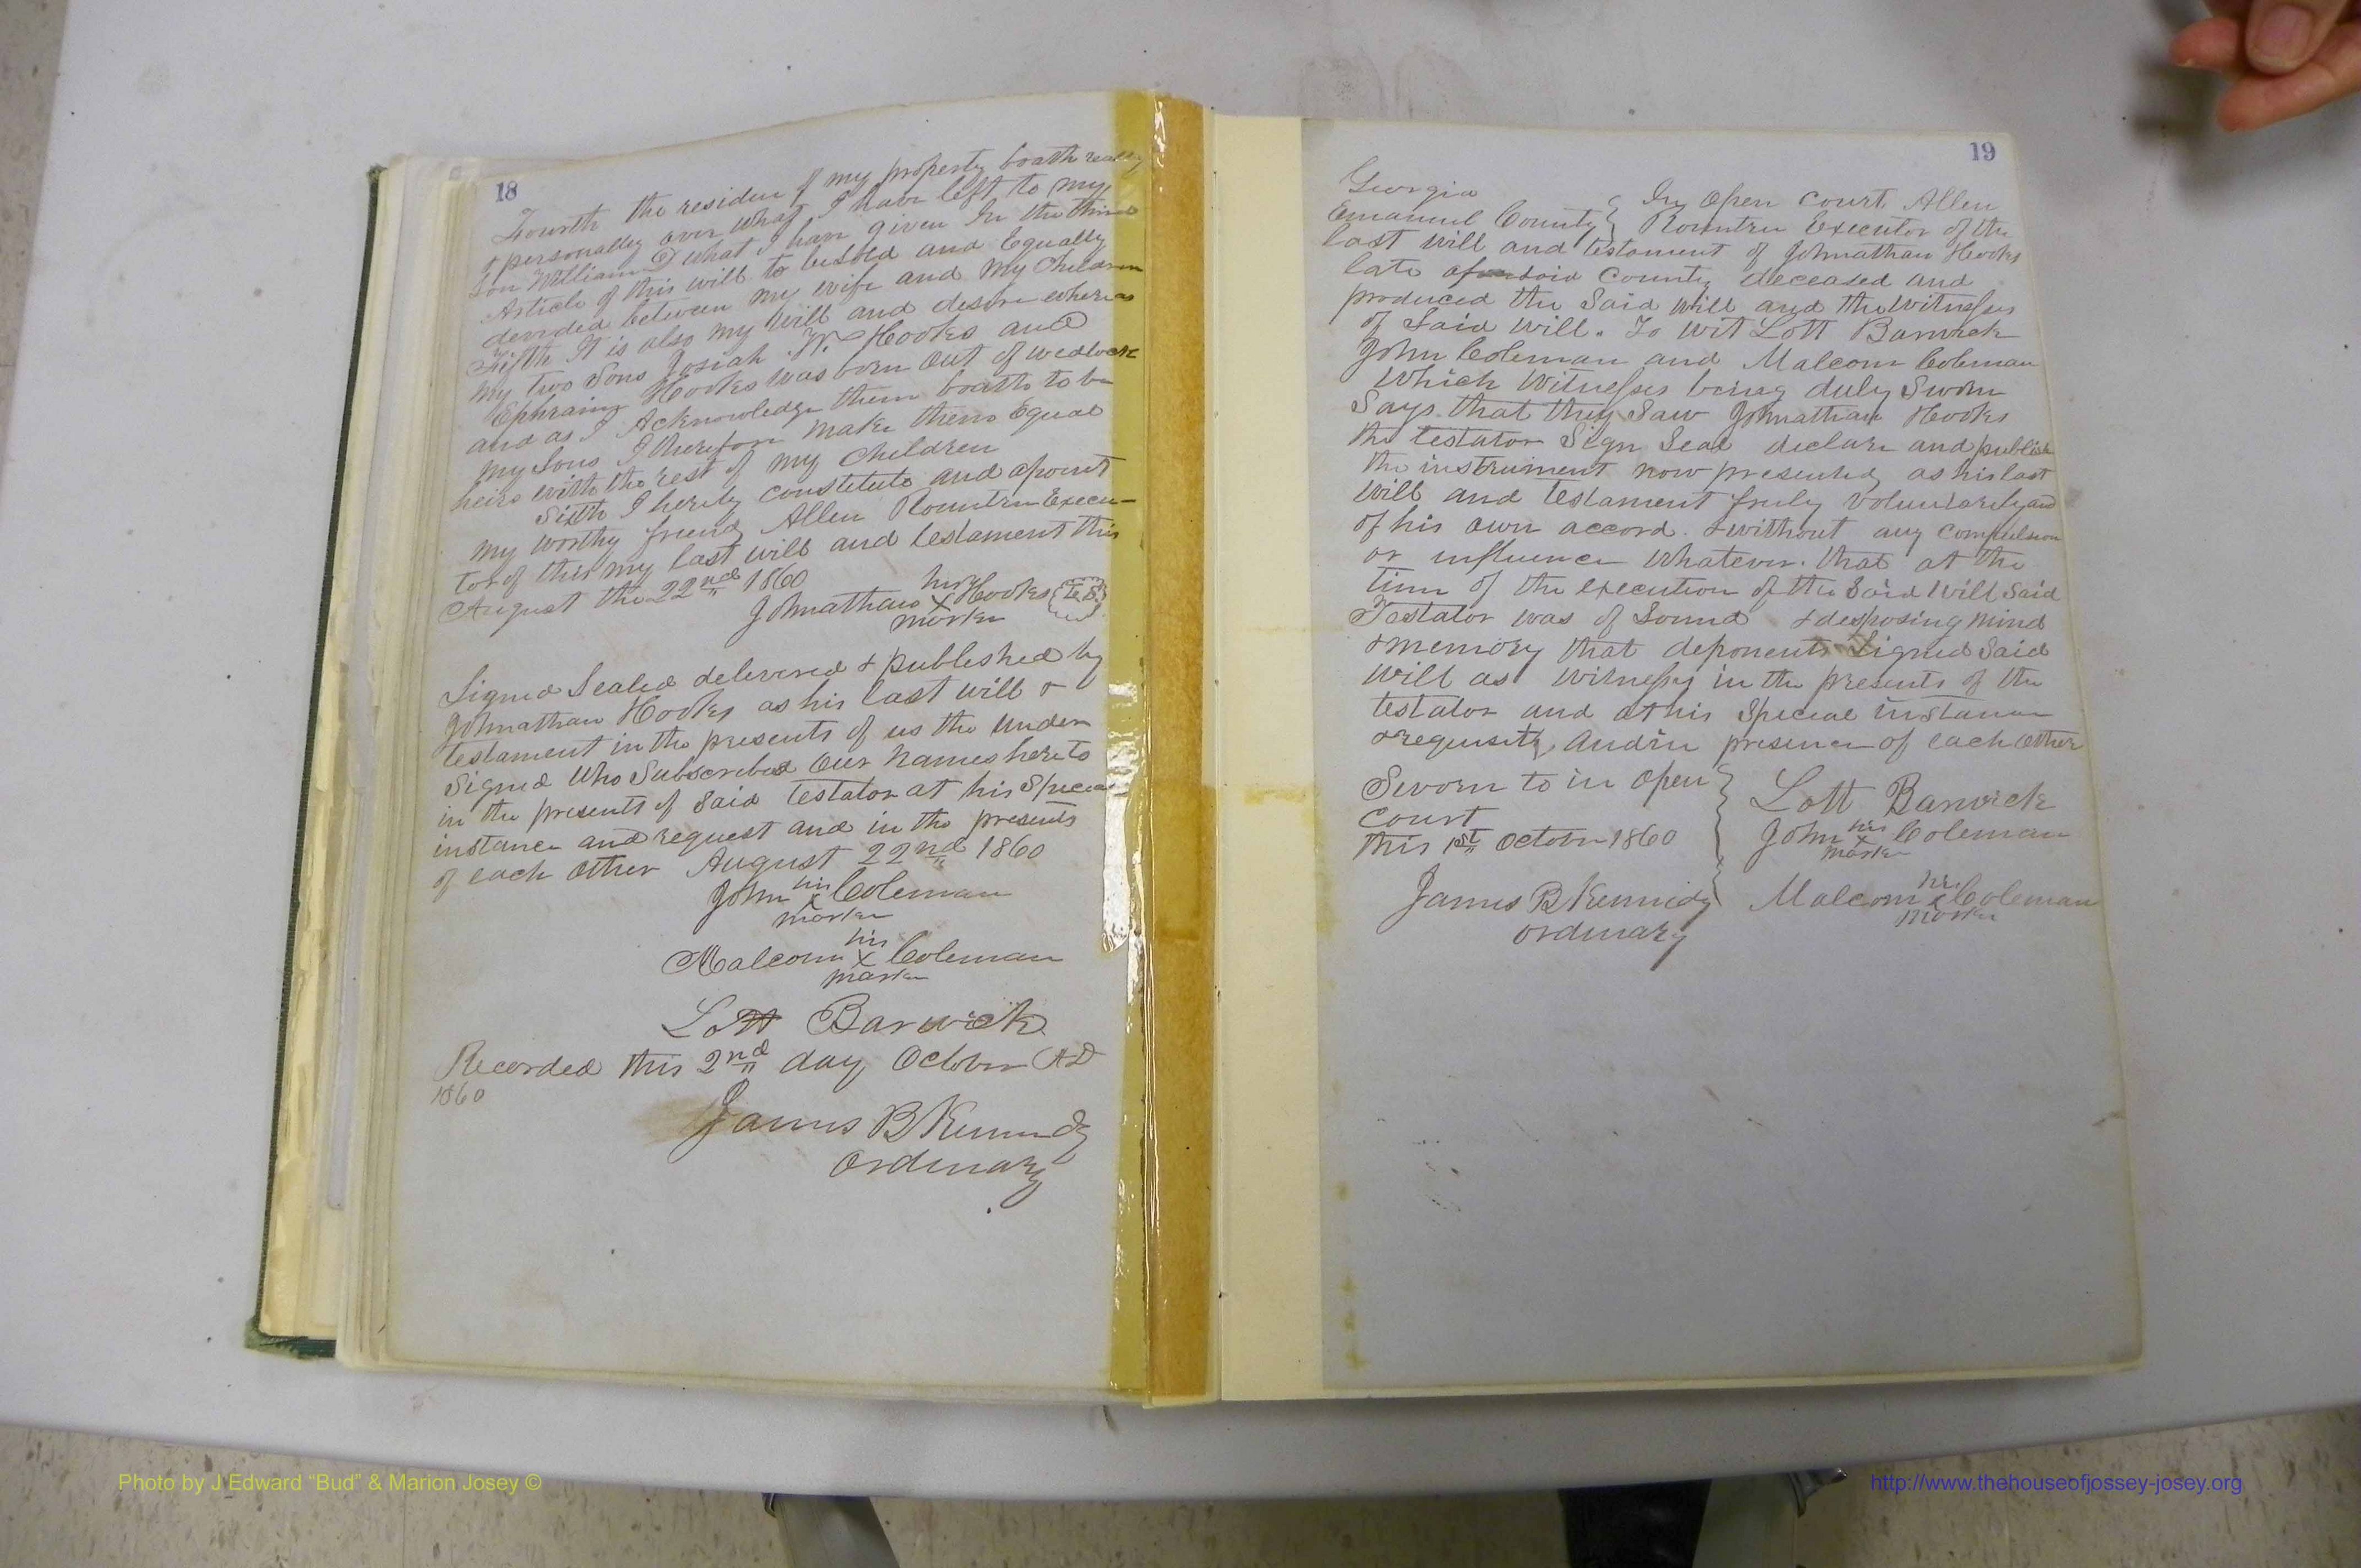 18
Fourth the residue of my property boath really
& personally over what I have left to my
Son William D what I have given In the third
Article of this will to be sold and Equally
devided between my wife and my Children
Fifth It is also my will and desire whereas
my two Sons Josiah W Hooks and
Ephraim Hooks was born out of wedlock
and as I Acknowledge them boath to be
my Sons I therefore make them Equal
heirs with the rest of my Children
Sixth I hereby constitute and apoint
my worthy friend Allen Rountree Execu-
tor of this my last will and testament this
August the 22nd 1860
his
Johnathan X Hooks L.S.
marke
Signed Sealed delivered & published by
Johnathan Hooks as his last will &
testament in the presents of us the under
Signed who Subscribed our names hereto
in the presents of Said testator at his Special
instance and request and in the presents
of each other August 22nd 1860
his
John X Coleman
marke
his
Malcom X Coleman
marke
Lott Barwick
Recorded this 2nd day October AD
1860
James B Kennedy
ordinary
19
Georgia
Emanuel County } In Open Court Allen
Rountree Executor of the
last will and testament of Johnathan Hooks
late of said County deceased and
produced the Said will and the Witnesses
of Said will. To wit Lott Barwick
John Coleman and Malcom Coleman
Which Witnesses being duly Sworn
Says that they Saw Johnathan Hooks
the testator Sign Seal declare and publish
the instrument now presented as his last
will and testament freely voluntarily and
of his own accord. & without any compulsion
or influence whatever. that at the
time of the execution of the Said Will Said
Testator was of Sound & desposing mind
& memory that deponents Signed Said
will as Witnesses in the presents of the
testator and at his Special instance
& request, and in presence of each other
Sworn to in open
Court
this 1st October 1860
James B Kennedy
ordinary
Lott Barwick
his
John X Coleman
marke
his
Malcom X Coleman
marke
Photo by J Edward “Bud” & Marion Josey ©
http://www.thehouseofjossey-josey.org